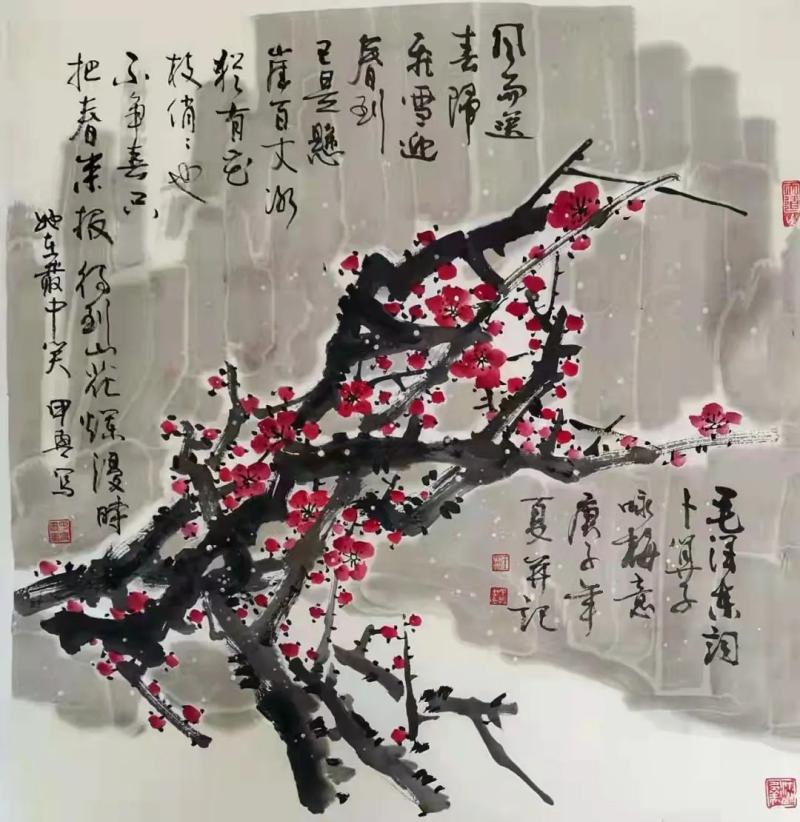 风雨送
春歸
飛雪迎
春到
已是懸
崖百丈冰
犹有花
枝俏〻也
不争春只
把春来报 待到山花爛漫時
她在叢中笑 写
毛泽东詞
卜算子
咏梅意
庚子年
夏并记